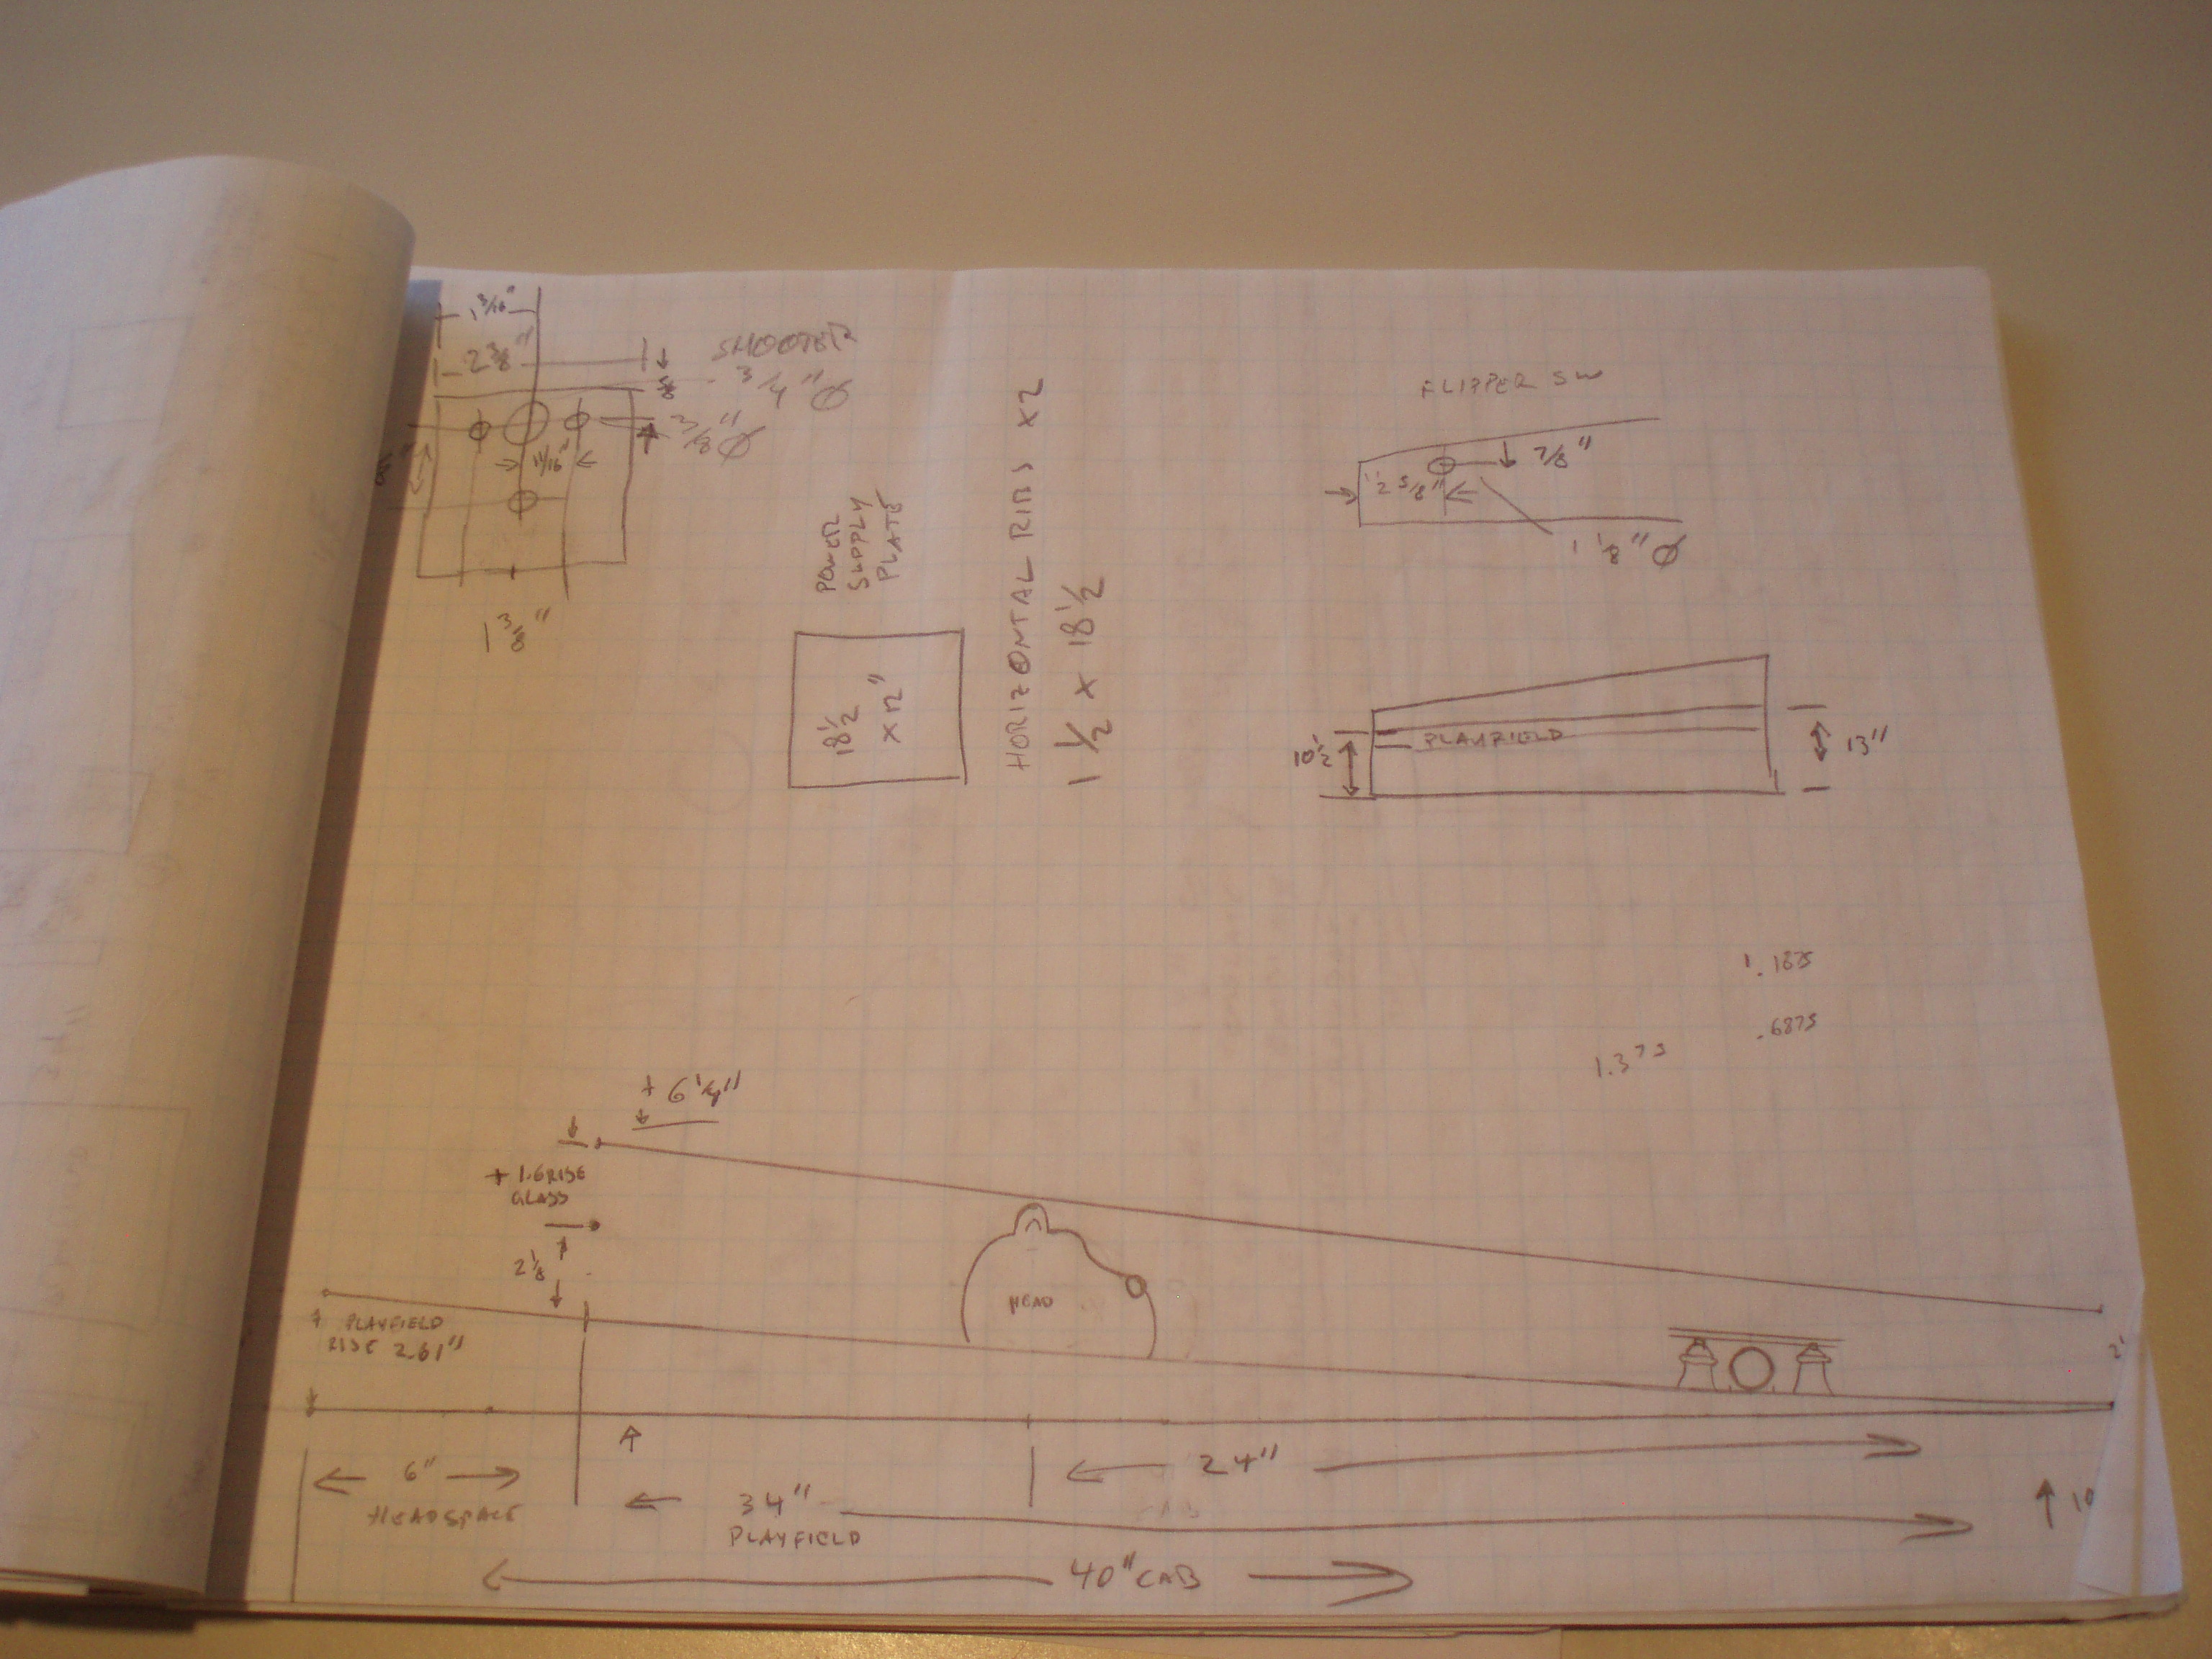 1 3/16"
2 3/8"
SHOOTER
3/4" Ø
3/8" Ø
11/16"
1 3/8"
POWER
SUPPLY
PLATE
18 1/2
x 12"
HORIZONTAL RIBS x2
1 1/2 x 18 1/2
FLIPPER SW
7/8"
2 5/8"
1 1/8" Ø
PLAYFIELD
10 1/2
13"
1.1875
.6875
1.375
+ 6 1/4"
+ 1.6 RISE
GLASS
2 1/8
HEAD
PLAYFIELD
RISE 2.61"
2"
6"
HEADSPACE
24"
34"
PLAYFIELD
10
40" CAB